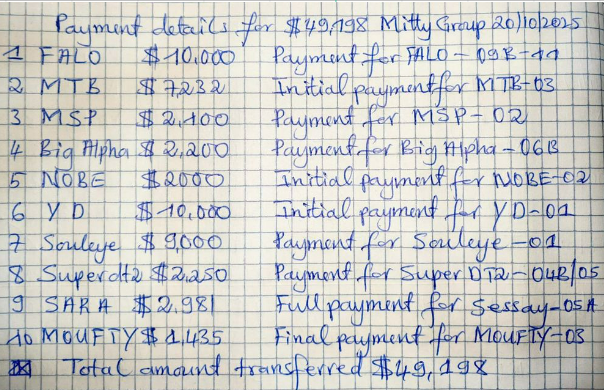 Payment details for $49,198 Mitty Group 20/10/2025
1 FALO $10,000 Payment for FALO - 09B-11
2 MTB $7,232 Initial payment for MTB-03
3 MSP $2,100 Payment for MSP-02
4 Big Alpha $2,200 Payment for Big Alpha-06B
5 NOBE $2000 Initial payment for NOBE-02
6 YD $10,000 Initial payment for YD-01
7 Souleye $9,000 Payment for Souleye-01
8 Superdt2 $2,250 Payment for Super DT2-04B/05
9 SARA $2,981 Full payment for Sessay-05A
10 MOUFTY $1,435 Final payment for MOUFTY-03
Total amount transferred $49,198